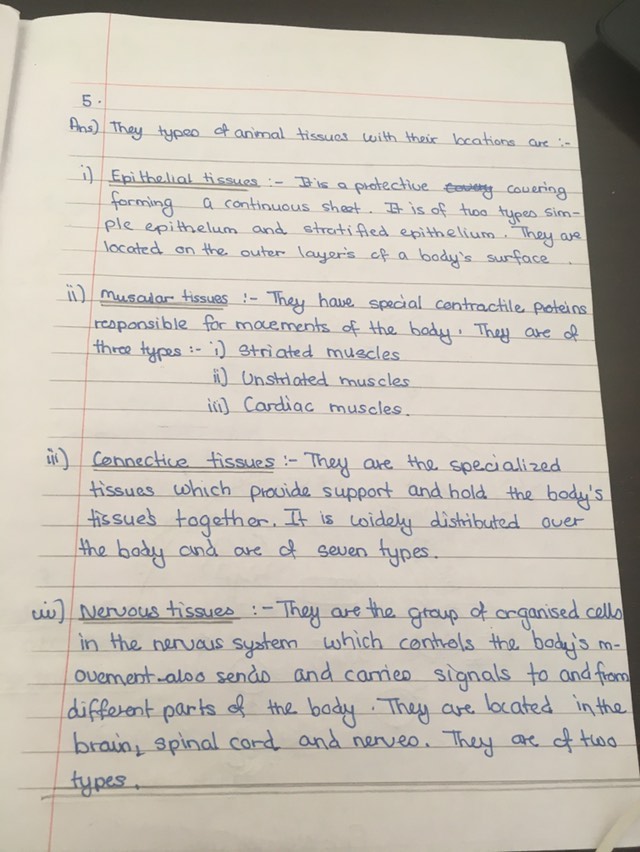 5.
Ans) They types of animal tissues with their locations are :-
i) Epithelial tissues :- It is a protective covering
forming a continuous sheet. It is of two types sim-
ple epithelum and stratified epithelium. They are
located on the outer layer's of a body's surface.
ii) Muscular tissues :- They have special contractile proteins
responsible for movements of the body. They are of
three types :- i) Striated muscles
ii) Unstriated muscles
iii) Cardiac muscles.
iii) Connective tissues :- They are the specialized
tissues which provide support and hold the body's
tissues together. It is widely distributed over
the body and are of seven types.
iv) Nervous tissues :- They are the group of organised cells
in the nervous system which controls the body's m-
ovement also sends and carries signals to and from
different parts of the body. They are located in the
brain, spinal cord and nerves. They are of two
types.